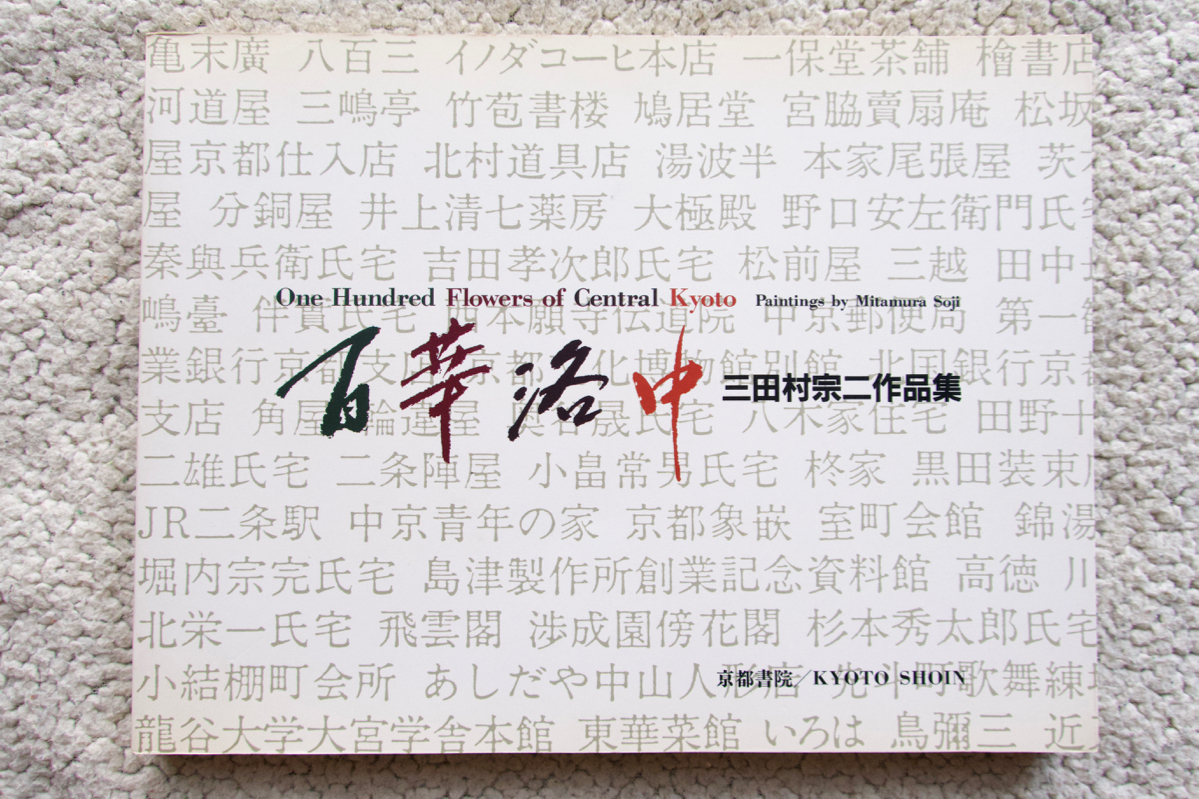 亀末廣 八百三 イノダコーヒ本店 一保堂茶舗 檜書店
河道屋 三嶋亭 竹苞書楼 鳩居堂 宮脇賣扇庵 松坂
屋京都仕入店 北村道具店 湯波半 本家尾張屋 茨木
屋 分銅屋 井上清七薬房 大極殿 野口安左衛門氏宅
秦與兵衛氏宅 吉田孝次郎氏宅 松前屋 三越 田中
One Hundred Flowers of Central Kyoto Paintings by Mitamura Soji
嶋臺 伴實氏宅 西本願寺伝道院 中京郵便局 第一勧
百華洛中 三田村宗二作品集
業銀行京都支店 京都文化博物館別館 北国銀行京都
支店 角屋 輪違屋 奥谷晟氏宅 八木家住宅 田野十
二雄氏宅 二条陣屋 小畠常男氏宅 柊家 黒田装束店
JR二条駅 中京青年の家 京都象嵌 室町会館 錦湯
堀内宗完氏宅 島津製作所創業記念資料館 高徳 川
北栄一氏宅 飛雲閣 渉成園傍花閣 杉本秀太郎氏宅
小結棚町会所 あしだや中山人形店 先斗町歌舞練
京都書院／KYOTO SHOIN
龍谷大学大宮学舎本館 東華菜館 いろは 鳥彌三 近